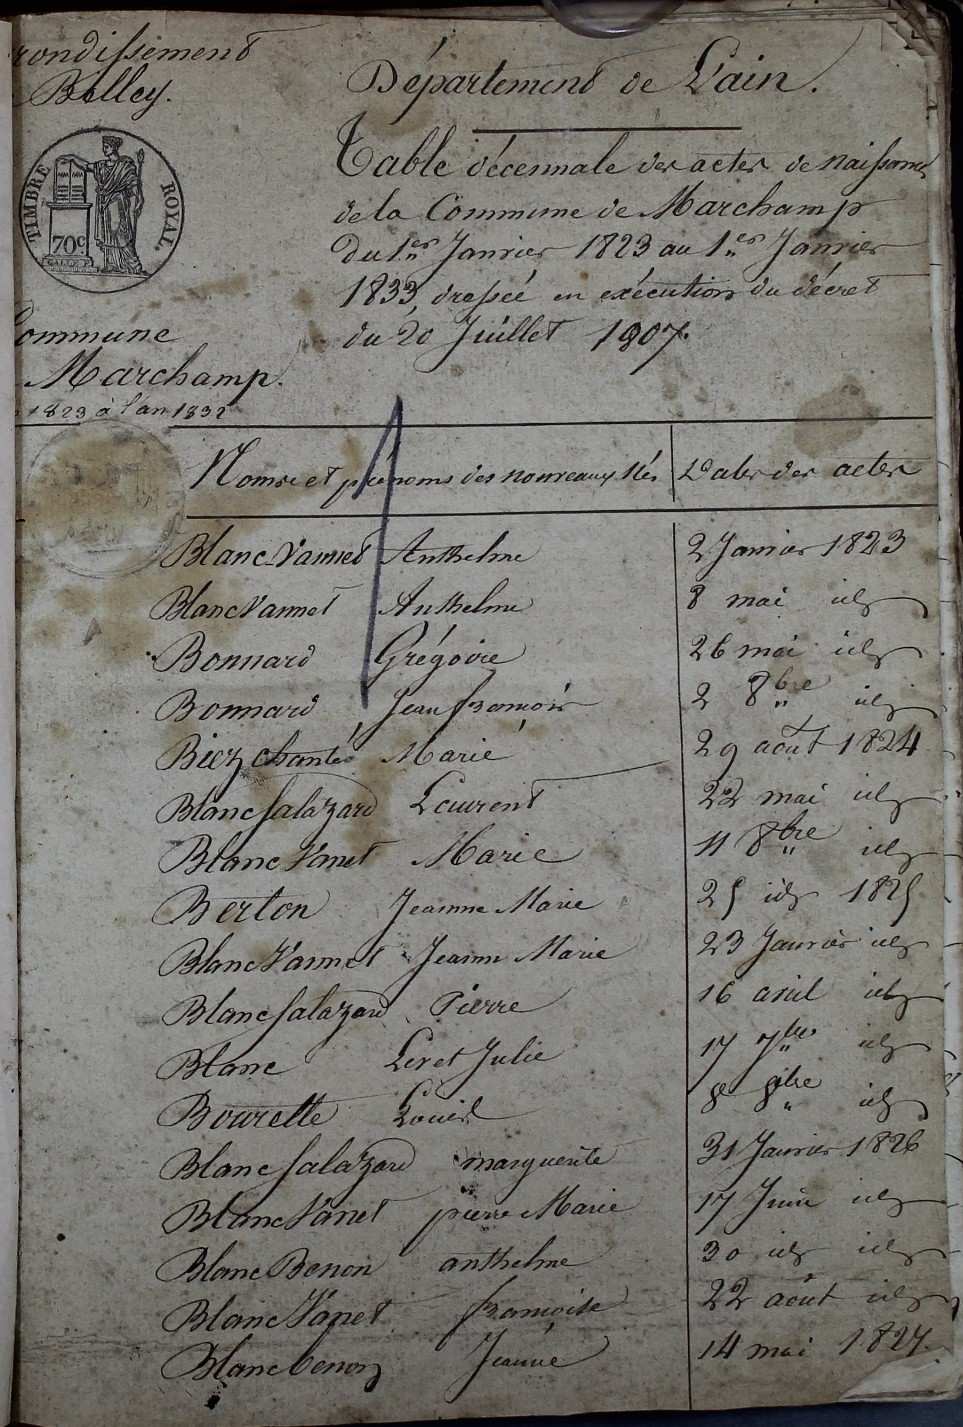 rondissement
Belley.
Département de L'ain.
TIMBRE ROYAL.
70c
Table décennale des actes de naissances
de la Commune de Marchamp
Du 1er Janvier 1823 au 1er Janvier
1833, dressée en exécution du décret
du 20 Juillet 1807.
Commune
Marchamp.
1823 à l'an 1832
Noms et prénoms des nouveaux Nés Dates des actes
Blanc Vannet Anthelme 2 Janvier 1823
Blanc Vannet Anthelme 8 mai id
Bonnard Grégoire 26 mai id
Bonnard Jean françois 2 8bre id
Biez chanté Marie 29 août 1824
Blanc Salazard Laurent 22 mai id
Blanc Vanet Marie 11 8bre id
Berton Jeanne Marie 25 id 1825
Blanc Vannet Jeanne Marie 23 Janvier id
Blanc Salazard Pierre 16 avril id
Blanc Leret Julie 17 7bre id
Bourette Louis 8 8bre id
Blanc Salazard marguerite 31 Janvier 1826
Blanc Vanet pierre Marie 17 Juin id
Blanc Benon anthelme 30 id id
Blanc Vanet françoise 22 août id
Blanc benon Jeanne 14 mai 1827.